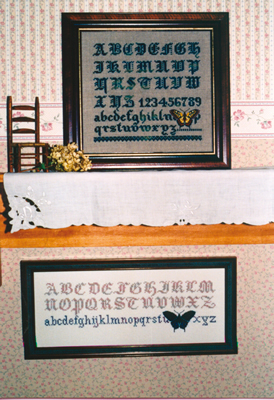 ABCDEFGH
IKLMNOP
QRSTUVW
XYZ 123456789
abcdefghijklm
qrstuvwxyz
ABCDEFGHIJKLM
NOPQRSTUVWXZ
abcdefghijklmnopqrstu xyz